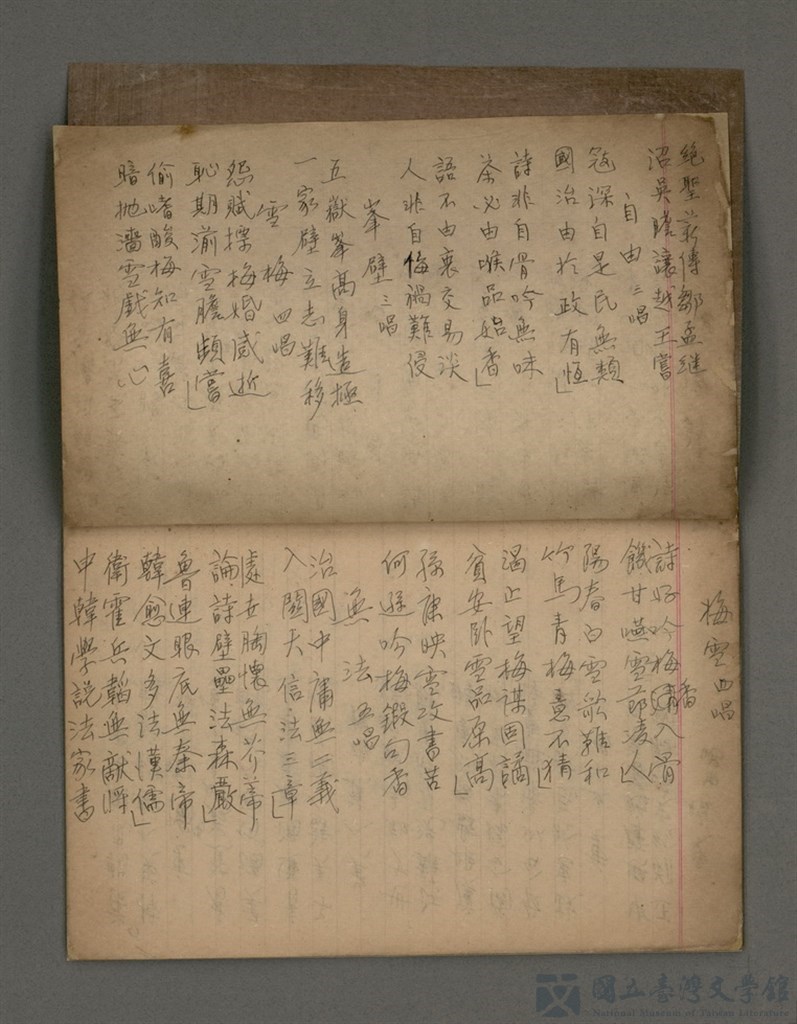 絕聖薪傳鄒孟継
沼吳賤讓越王嘗
自由 三唱
寇深自是民無類
國治由於政有恆」
詩非自骨吟無味
茶必由喉品始香」
語不由衷交易淡
人非自侮禍難侵
峯壁 三唱
五嶽峯高身造極
一家壁立志難移
雪梅 四唱
怨賦摽梅婚感逝
恥期湔雪膽頻嘗」
偷嗜酸梅知有喜
暗拋濇雪戲無心
梅雪 四唱
詩好吟梅香入骨
饑甘嚥雪節凌人」
陽春白雪歌難和
竹馬青梅意不猜」
渴止望梅謀固譎
貧安卧雪品原高」
孫康映雪攻書苦
何遜吟梅鍛句香
無法 五唱
治國中庸無二義
入關大信法三章」
處世胸懷無芥蒂
論詩壁壘法森嚴」
魯連眼底無秦帝
韓愈文多法漢儒」
衛霍兵韜無獻將
申韓學説法家書
國立臺灣文學館
National Museum of Taiwan Literature